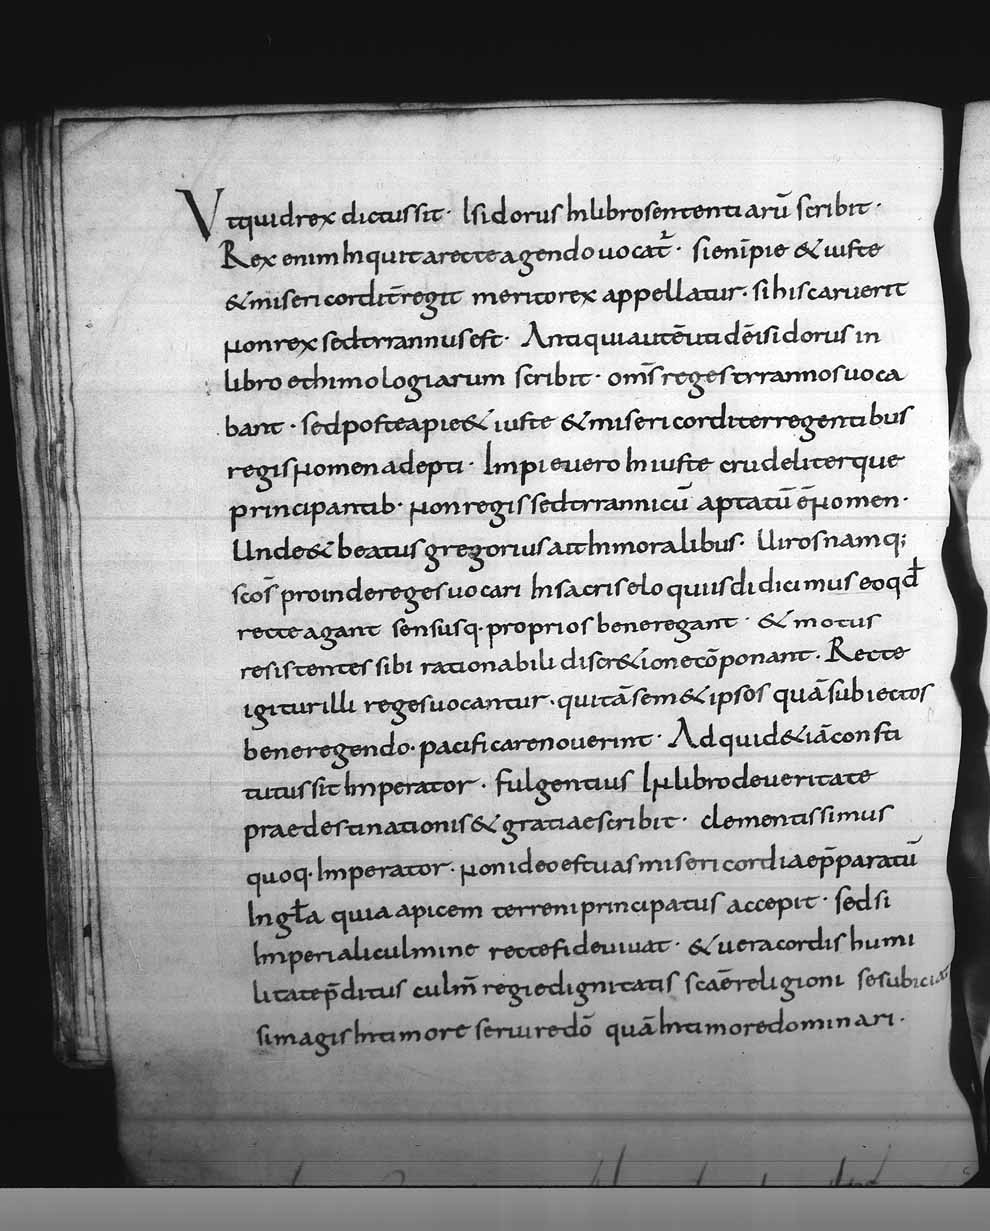 Ut quid rex dictus sit · Isidorus In libro sententiarū scribit ·
Rex enim Inquit a recte agendo uocat̄ · si enī pie & iuste
& misericordit̄ regit merito rex appellatur · si his caruerit
non rex sed tyrannus est · Antiqui autē uti dē isidorus in
libro ethimologiarum scribit · om̄s reges tyrannos uoca
bant · sed postea pie & iuste & misericorditer regentibus
regis nomen adepti · Impie uero Iniuste crudeliterque
principantib· non regis sed tyrannicū aptatū ē nomen ·
Unde & beatus gregorius ait In moralibus · Uiros namq;
scōs proinde reges uocari In sacris eloquiis didicimus eo qd̄
recte agant sensusq· proprios bene regant · & motus
resistentes sibi rationabili discr&ione cōponant · Recte
igitur illi reges uocantur · qui tā sem&ipsos quā subiectos
bene regendo · pacificare nouerint · Ad quid & iā consti
tutus sit Imperator · fulgentius In libro de ueritate
praedestinationis & gratiae scribit · clementissimus
quoq· Imperator · non ideo est uas misericordiae p̄paratū
In gł̄a quia apicem terreni principatus accepit · sed si
Imperiali culmine recte fide uiuat · & uera cordis humi
litate p̄ditus culm̄ regie dignitatis scāe religioni se subiciat
si magis In timore seruire dō quā In timore dominari ·